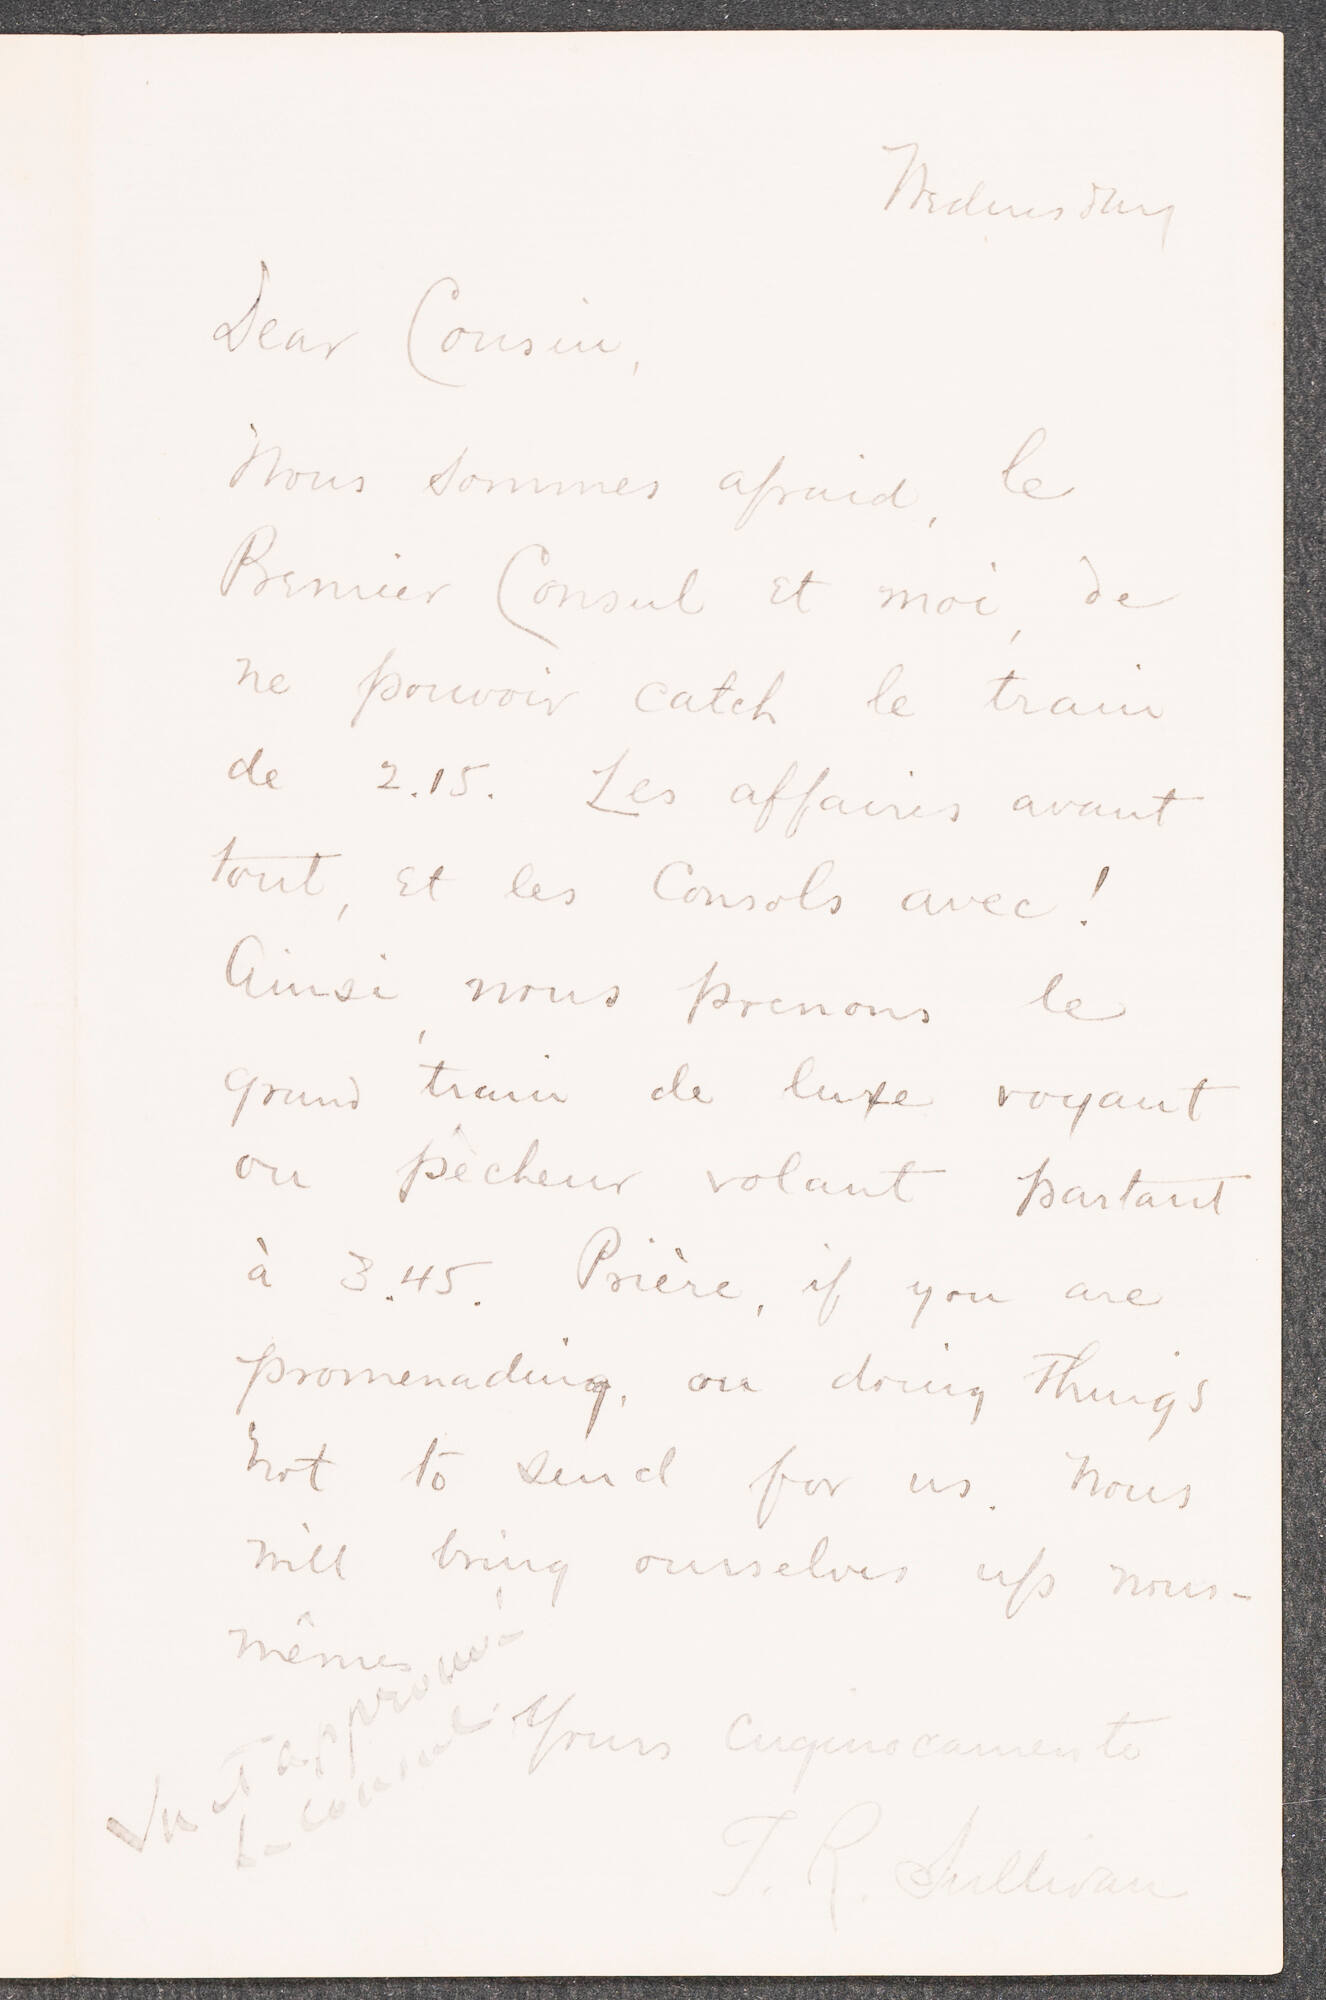 Wednesday
Dear Cousin,
Nous sommes afraid, le
Premier Consul et moi, de
ne pouvoir catch le train
de 2.15. Les affaires avant
tout, et les Consols avec!
Ainsi, nous prenons le
grand train de luxe voyant
ou pêcheur volant partant
à 3.45. Prière, if you are
promenading, ou doing things
not to send for us. Nous
will bring ourselves up nous-
mêmes
Yours cuginocamente
T. R. Sullivan
Vu et approuvé
le consul